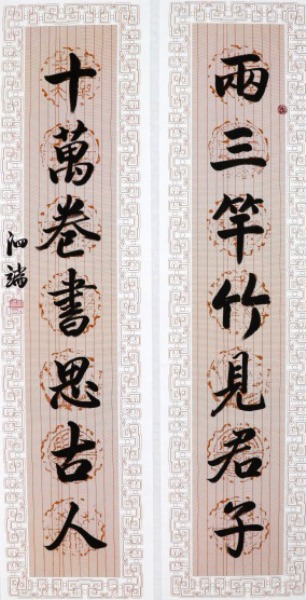 兩三竿竹見君子
十萬卷書思古人
泗端